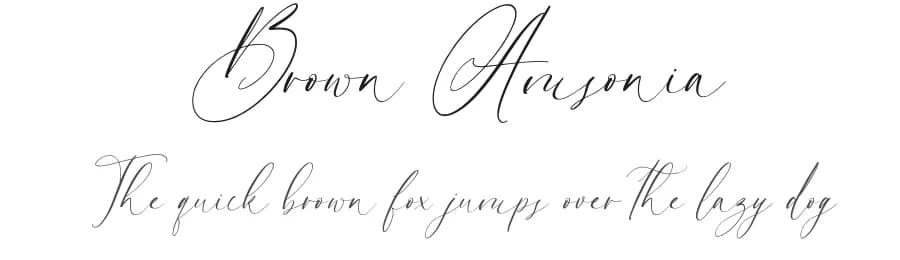 Brown Amsonia
The quick brown fox jumps over the lazy dog